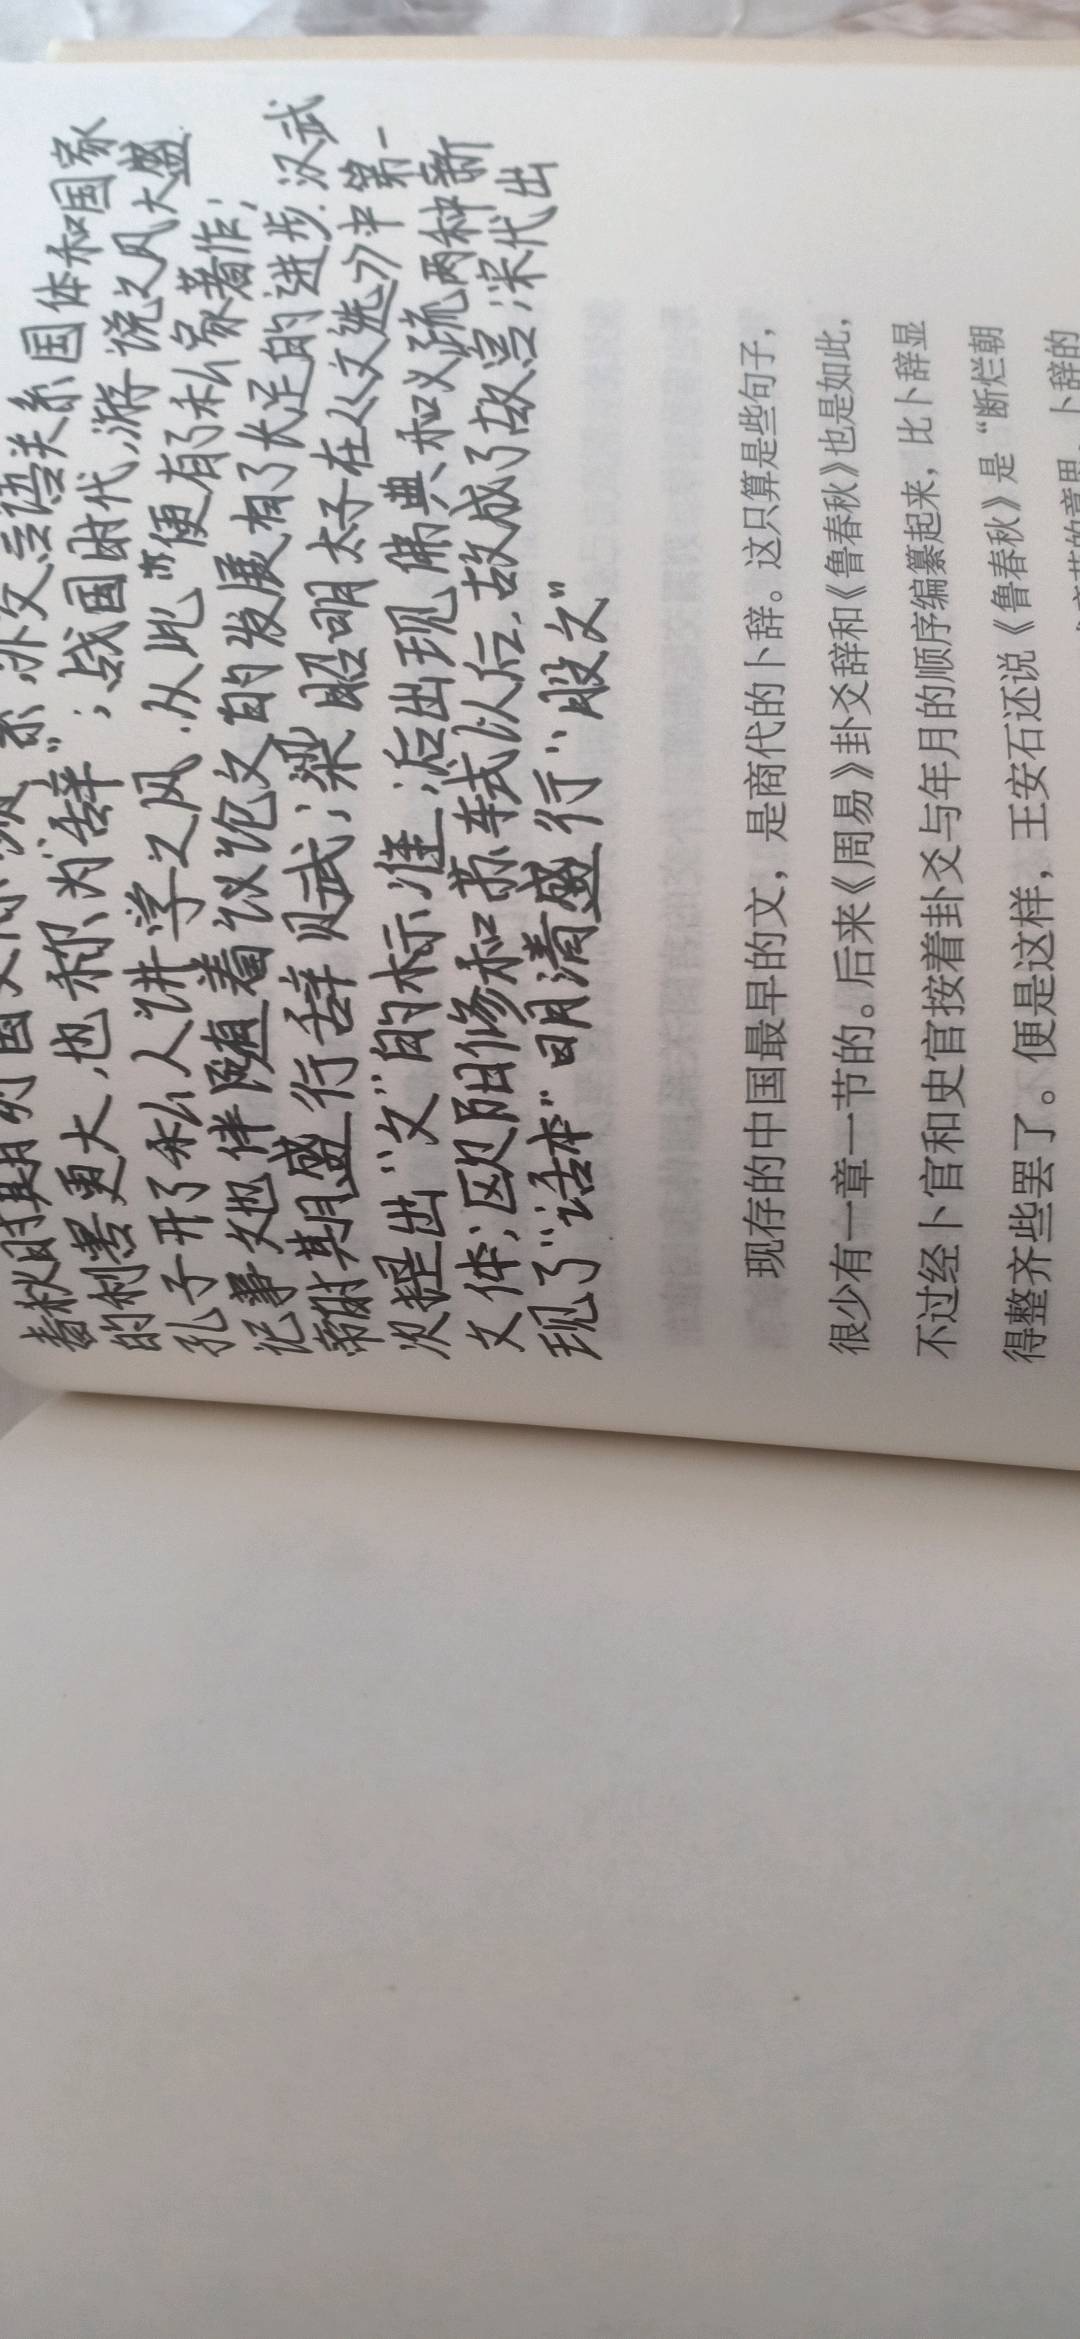 春秋时期列国交 外交言语关系国体和国家
的利害更大,也称为“辞”;战国时代,游说之风大盛.
孔子开了私人讲学之风.从此”便有了私家著作;
记事文也伴随着议论文的发展有了长足的进步.汉武
帝时期盛行辞赋;梁昭明太子在《文选》中第一
次提出“文”的标准;后出现佛典和义疏两种新
文体;欧阳修和苏轼以后,古文成了 ;宋代出
现了“话本”明清盛行“股文”
现存的中国最早的文,是商代的卜辞。这只算是些句子,
很少有一章一节的。后来《周易》卦爻辞和《鲁春秋》也是如此,
不过经卜官和史官按着卦爻与年月的顺序编纂起来,比卜辞显
得整齐些罢了。便是这样,王安石还说《鲁春秋》是“断烂朝
的意思,卜辞的